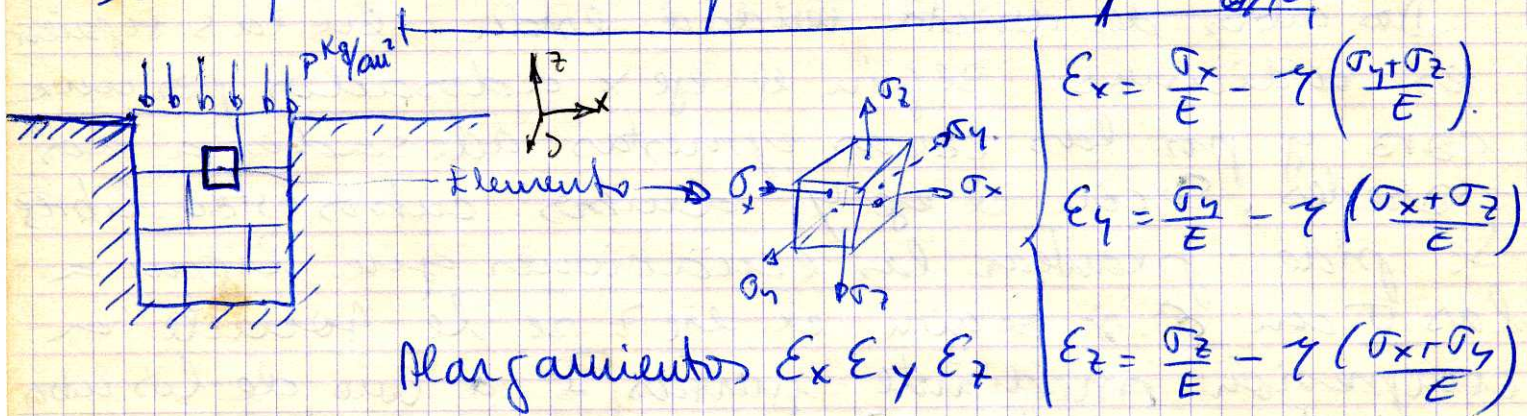 p Kg/cm²
z
x
Elemento
σz
σy.
σx
σx
σy
σz
Alargamientos εx εy εz
εx = σx/E - η (σy+σz/E).
εy = σy/E - η (σx+σz/E)
εz = σz/E - η (σx+σy/E)